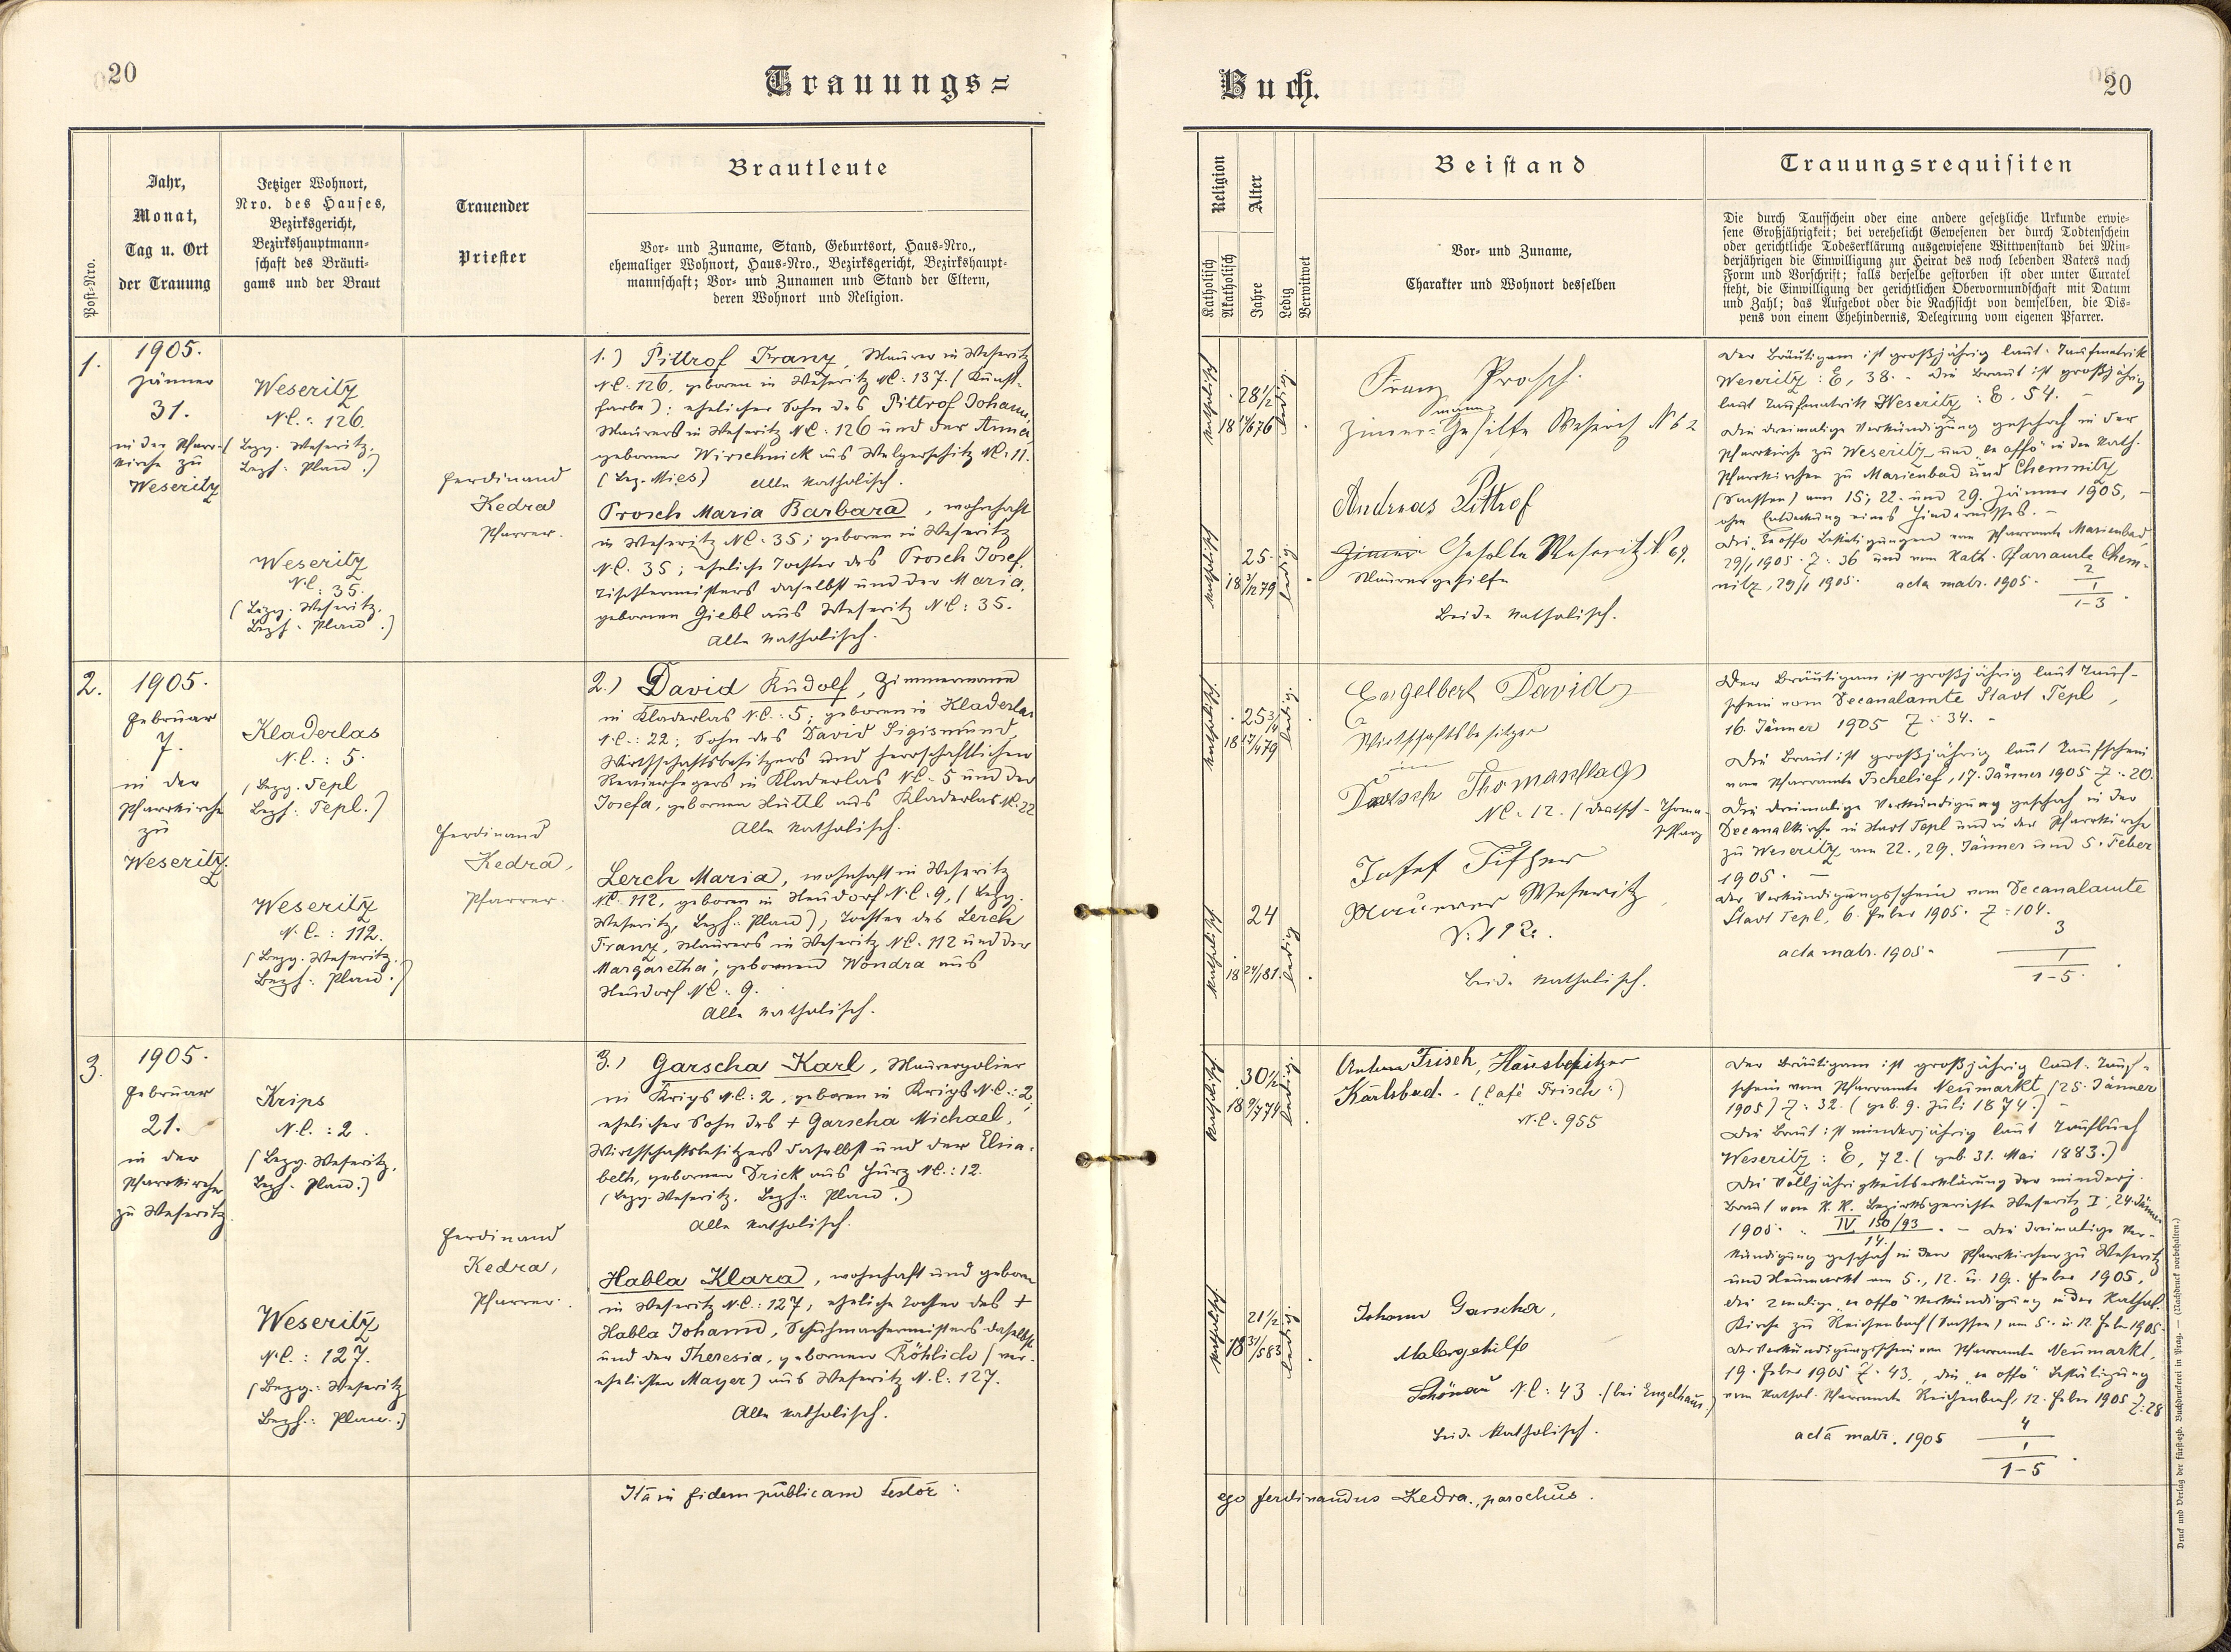 20
Trauungs=
Post=Nro.
Jahr,
Monat,
Tag u. Ort
der Trauung
Jetziger Wohnort,
Nro. des Hauses,
Bezirksgericht,
Bezirkshauptmann=
schaft des Bräuti=
gams und der Braut
Trauender
Priester
Brautleute
Vor= und Zuname, Stand, Geburtsort, Haus=Nro.,
ehemaliger Wohnort, Haus=Nro., Bezirksgericht, Bezirkshaupt=
mannschaft; Vor= und Zunamen und Stand der Eltern,
deren Wohnort und Religion.
1.
1905.
Jänner
31.
in der Pfarr-
kirche zu
Weseritz
Weseritz
N.C.: 126.
(Bezg. Weseritz.
Bezh: Plan.)
Weseritz
N.C.: 35.
(Bezg. Weseritz.
Bezh: Plan.)
Ferdinand
Kedra
Pfarrer.
1.) Pittrof Franz, Maurer in Weseritz
N.C. 126, geboren in Weseritz N.C: 137. (Kunst-
farbe): ehelicher Sohn des Pittrof Johann,
Maurers in Weseritz N.C: 126 und der Anna,
geborner Wirschnick aus Welperschitz N.C: 11.
(Bez. Mies) Alle katholisch.
Prosch Maria Barbara, wohnhaft
in Weseritz N.C: 35; geboren in Weseritz
N.C. 35; eheliche Tochter des Prosch Josef,
Tischlermeisters daselbst und der Maria,
gebornen Giebl aus Weseritz N.C: 35.
Alle katholisch.
2.
1905.
Februar
7.
in der
Pfarrkirche
zu
Weseritz.
Kladerlas
N.C.: 5.
(Bezg. Tepl
Bezh: Tepl.)
Weseritz
N.C.: 112.
(Bezg. Weseritz.
Bezh: Plan.)
Ferdinand
Kedra,
Pfarrer.
2.) David Rudolf, Zimmermann
in Kladerlas N.C.: 5; geboren in Kladerlas
N.C.: 22; Sohn des David Sigismund,
Wirthschaftsbesitzers und herrschaftlichen
Revierhegers in Kladerlas N.C: 5 und der
Josefa, gebornen Hüttl aus Kladerlas N.C. 22
Alle katholisch.
Lerch Maria, wohnhaft in Weseritz
N.C. 112, geboren in Neudorf N.C: 9, (Bezg.
Weseritz, Bezh: Plan), Tochter des Lerch
Franz, Maurers in Weseritz N.C. 112 und der
Margaretha, gebornen Wondra aus
Neudorf N.C: 9.
Alle katholisch.
3.
1905.
Februar
21.
in der
Pfarrkirche
zu Weseritz.
Krips
N.C.: 2.
(Bezg. Weseritz.
Bezh: Plan.)
Weseritz
N.C.: 127.
(Bezg.: Weseritz
Bezh.: Plan.)
Ferdinand
Kedra,
Pfarrer.
3.) Garscha Karl, Maurerpolier
in Krips N.C: 2, geboren in Krips N.C.: 2;
ehelicher Sohn des + Garscha Michael,
Wirthschaftsbesitzers daselbst und der Elisa-
beth, gebornen Drick aus Hurz N.C.: 12.
(Bezg. Weseritz. Bezh: Plan.)
Alle katholisch.
Habla Klara, wohnhaft und geboren
in Weseritz N.C.: 127; eheliche Tochter des +
Habla Johann, Schuhmachermeisters daselbst
und der Theresia, gebornen Röhlich (ver-
ehelichten Mayer) aus Weseritz N.C: 127.
Alle katholisch.
Ita in fidem publicam testor:
Buch.
20
Religion
Katholisch
Akatholisch
Alter
Jahre
Ledig
Verwitwet
Beistand
Vor= und Zuname,
Charakter und Wohnort desselben
Trauungsrequisiten
Die durch Taufschein oder eine andere gesetzliche Urkunde erwie=
sene Großjährigkeit; bei verehelicht Gewesenen der durch Todtenschein
oder gerichtliche Todeserklärung ausgewiesene Wittwenstand bei Min=
derjährigen die Einwilligung zur Heirat des noch lebenden Vaters nach
Form und Vorschrift; falls derselbe gestorben ist oder unter Curatel
steht, die Einwilligung der gerichtlichen Obervormundschaft mit Datum
und Zahl; das Aufgebot oder die Nachsicht von demselben, die Dis=
pens von einem Ehehindernis, Delegirung vom eigenen Pfarrer.
katholisch
28 1/2
ledig.
Franz Prosch.
mann
Zimmer-Gehilfe Weserich N 62
katholisch
25
18 3/12 79
ledig.
Andreas Pittrof
Zimmer Geholte Weseritz N. 69.
Maurergehilfe
Beide katholisch.
Der Bräutigam ist großjährig laut Taufmatrik
Weseritz: E, 38. - Die Braut ist großjährig
laut Taufmatrik Weseritz: E. 54. -
Die dreimalige Verkündigung geschah in der
Pfarrkirche zu Weseritz und "ex offo" in den kath.
Pfarrkirchen zu Marienbad und Chemnitz
(Sachsen) am 15; 22. und 29. Jänner 1905, -
ohne Entdeckung eines Hindernisses. -
Die "ex offo Bestätigungen vom Pfarramte Marienbad,
29/1 1905. Z: 36 und vom Kath. Pfarramte Chem-
nitz, 29/1 1905. acta matr. 1905. 2
1
1-3.
katholisch.
25 3/4
18 17/4 79
ledig.
Engelbert David
Wirtschaftsbesitzer
in
Deutsch Thomaschlag
N.C. 12. (Deutsch-Thoma-
schlag
katholisch
24
ledig
Josef Fischer
Maurer Weseritz
N. 192.
Beide katholisch.
Der Bräutigam ist großjährig laut Tauf-
schein vom Decanalamte Stadt Tepl,
16. Jänner 1905 Z: 34. -
Die Braut ist großjährig laut Taufschein
vom Pfarramte Tschelief, 17. Jänner 1905 Z: 20.
Die dreimalige Verkündigung geschah in der
Decanalkirche in Stadt Tepl und in der Pfarrkirche
zu Weseritz am 22., 29. Jänner und 5. Feber
1905. -
Der Verkündigungsschein vom Decanalamte
Stadt Tepl, 6. Feber 1905. Z: 104.
acta matr. 1905. 3
1
1-5.
katholisch.
30 1/2
18 9/7 74
ledig.
Anton Frisch, Hausbesitzer
Karlsbad. - ("Café Frisch":)
N.C. 955
katholisch.
21 1/2
18 31/5 83
ledig.
Johann Garscha,
Malergehilfe
Schönau N.C: 43. (bei Engelhaus.)
Beide katholisch.
Der Bräutigam ist großjährig laut Tauf-
schein vom Pfarramte Neumarkt, (25. Jänner
1905) Z: 32. (geb. 9. Juli 1874.) -
Die Braut ist minderjährig laut Taufbuch
Weseritz: E, 72. (geb. 31. Mai 1883.)
Die Volljährigkeitserklärung der minderj.
Braut vom K. K. Bezirksgerichte Weseritz I, 24. Jänner
1905. IV 150/93. - Die dreimalige Ver-
14.
kündigung geschah in den Pfarrkirchen zu Weseritz
und Neumarkt am 5., 12. u. 19. Feber 1905,
die 2malige "ex offo" Verkündigung in der kathol.
Kirche zu Reichenbach (Sachsen) am 5. u. 12. Feber 1905.
Der Verkündigungsschein vom Pfarramte Neumarkt,
19. Feber 1905 Z: 43., die "ex offo" Bestätigung
vom kathol. Pfarramte Reichenbach, 12. Feber 1905 Z: 28
acta matr. 1905 4
1
1-5.
ego Ferdinandus Kedra, parochus.
Druck und Verlag der fürsterzb. Buchdruckerei in Prag. — (Nachdruck vorbehalten.)